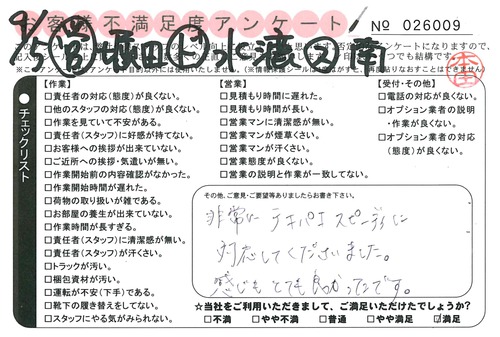 お客様不満足度アンケート
No 026009
チェックリスト
【作業】
□責任者の対応(態度)が良くない。
□他のスタッフの対応(態度)が良くない。
□作業を見ていて不安がある。
□責任者(スタッフ)に好感が持てない。
□お客様への挨拶が出来ていない。
□ご近所への挨拶・気遣いが無い。
□作業開始前の内容確認がなかった。
□作業開始時間が遅れた。
□荷物の取り扱いが雑である。
□お部屋の養生が出来ていない。
□作業時間が長すぎる。
□責任者(スタッフ)に清潔感が無い。
□責任者(スタッフ)が汗くさい。
□トラックが汚い。
□梱包資材が汚い。
□運転が不安(下手)である。
□靴下の履き替えをしてない。
□スタッフにやる気がみられない。
【営業】
□見積もり時間に遅れた。
□見積もり時間が長い。
□営業マンに清潔感が無い。
□営業マンが煙草くさい。
□営業マンが汗くさい。
□営業態度が良くない。
□営業の説明と作業が一致してない。
【受付・その他】
□電話の対応が良くない。
□オプション業者の説明
・作業が良くない。
□オプション業者の対応
(態度)が良くない。
その他、ご意見・ご要望等ありましたらお書き下さい。
非常に テキパキ スピーディに
対応してくださいました。
感じも とても 良かったです。
☆当社をご利用いただきまして、ご満足いただけたでしょうか?
□不満 □やや不満 □普通 □やや満足 ☑満足